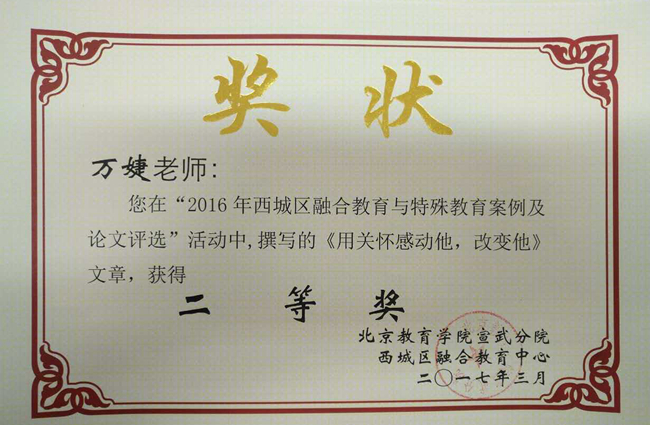 奖状
万婕老师:
您在“2016年西城区融合教育与特殊教育案例及
论文评选”活动中,撰写的《用关怀感动他，改变他》
文章，获得
二等奖
北京教育学院宣武分院
西城区融合教育中心
二〇一七年三月